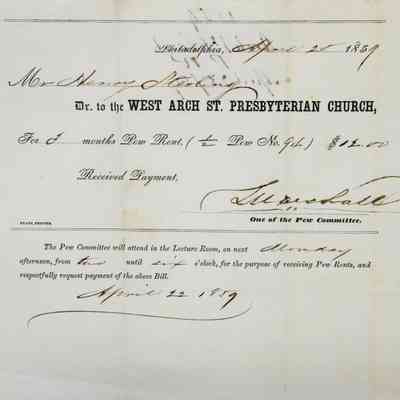 Philadelphia, April 20 1859
Mr Henry Sterling
Dr. to the WEST ARCH ST. PRESBYTERIAN CHURCH,
For 3 months Pew Rent. (½ Pew No. 94) $12.00
Received Payment,
Marshall
One of the Pew Committee.
The Pew Committee will attend in the Lecture Room, on next Monday
afternoon, from two until six o'clock, for the purpose of receiving Pew Rents, and
respectfully request payment of the above Bill.
April 22 1859